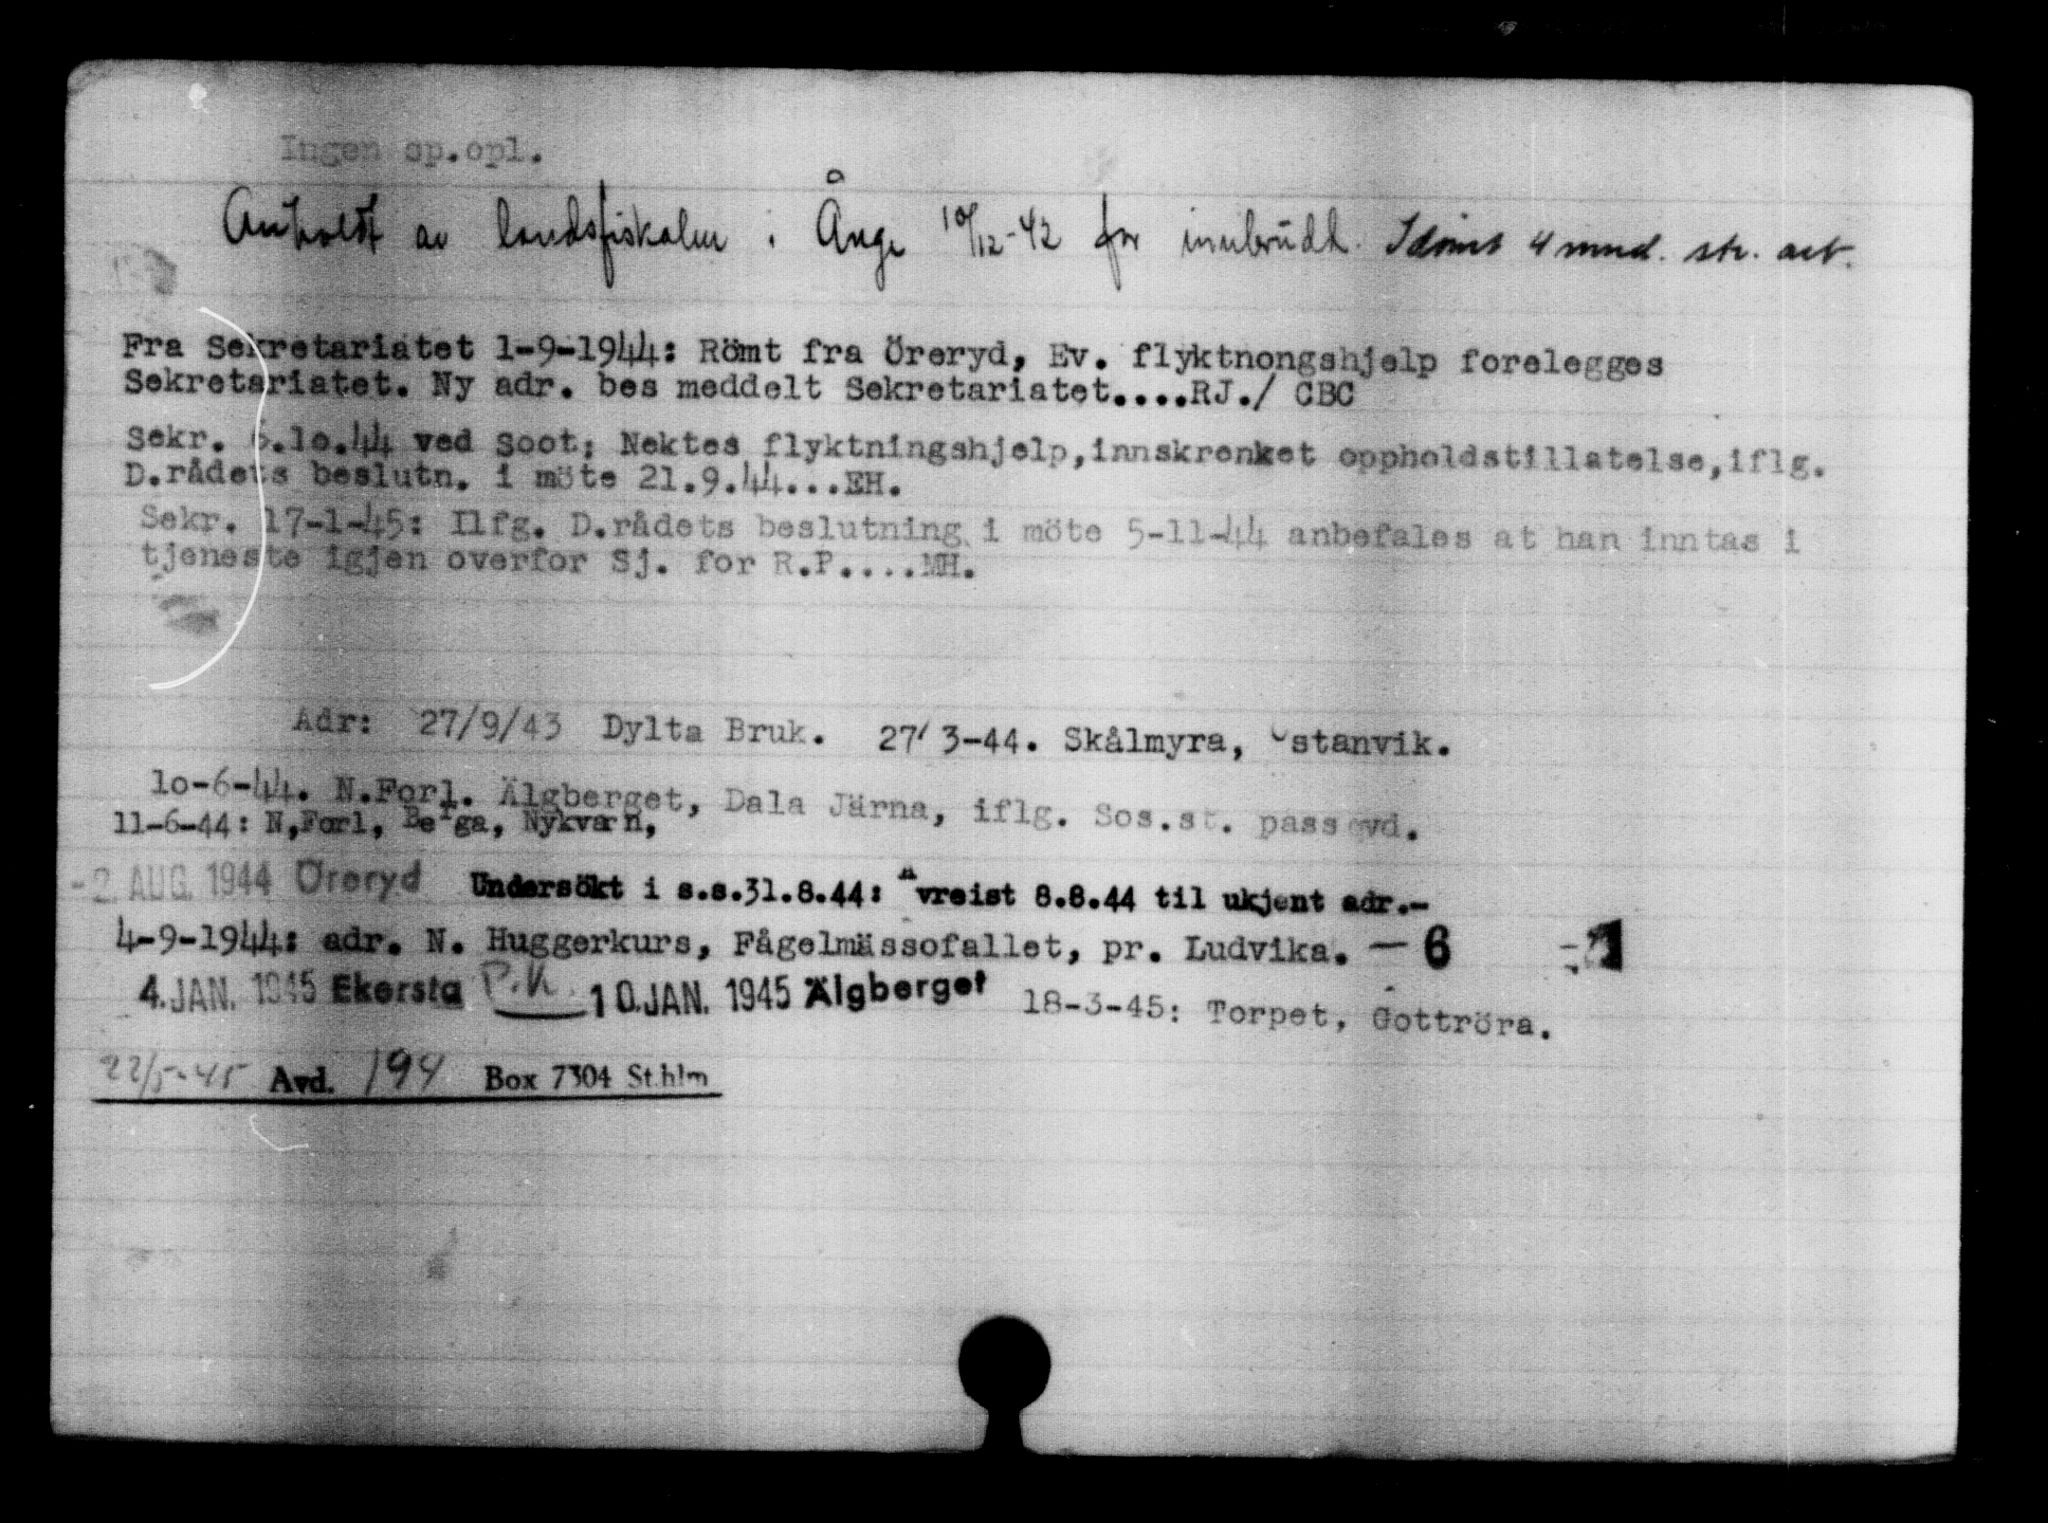 Ingen sp.opl.
Anholdt av landsfiskalen i Ånge 10/12-42 for innbrudd. Idömt 4 mnd. str. arb.
Fra Sekretariatet 1-9-1944: Römt fra Öreryd, Ev. flyktnongshjelp forelegges
Sekretariatet. Ny adr. bes meddelt Sekretariatet....RJ./ CBC
Sekr. 6.10.44 ved Soot; Nektes flyktningshjelp,innskrenket oppholdstillatelse,iflg.
D.rådets beslutn. i möte 21.9.44...EH.
Sekr. 17-1-45: Ilfg. D.rådets beslutning i möte 5-11-44 anbefales at han inntas i
tjeneste igjen overfor Sj. for R.P....MH.
Adr: 27/9/43 Dylta Bruk. 27/3-44. Skålmyra, Östanvik.
10-6-44. N.Forl. Älgberget, Dala Järna, iflg. Sos.st. passavd.
11-6-44: N,Forl, Berga, Nykvarn,
-2. AUG. 1944 Öreryd Undersökt i s.s.31.8.44: Avreist 8.8.44 til ukjent adr.-
4-9-1944: adr. N. Huggerkurs, Fågelmässofallet, pr. Ludvika. - 6
4. JAN. 1945 Ekersta P.K. 10. JAN. 1945 Älgberget 18-3-45: Torpet, Gottröra.
22/5-45 Avd. 194 Box 7304 St.hlm